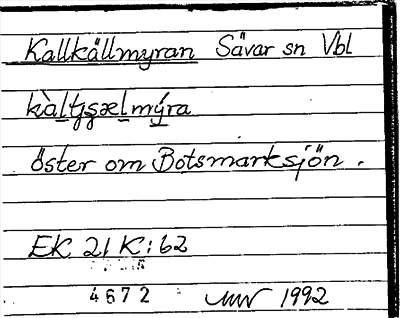 Kallkällmyran Sävar sn Vbl
kàltʂælmýra
öster om Botsmarksjön.
EK 21 K:62
4672 1992